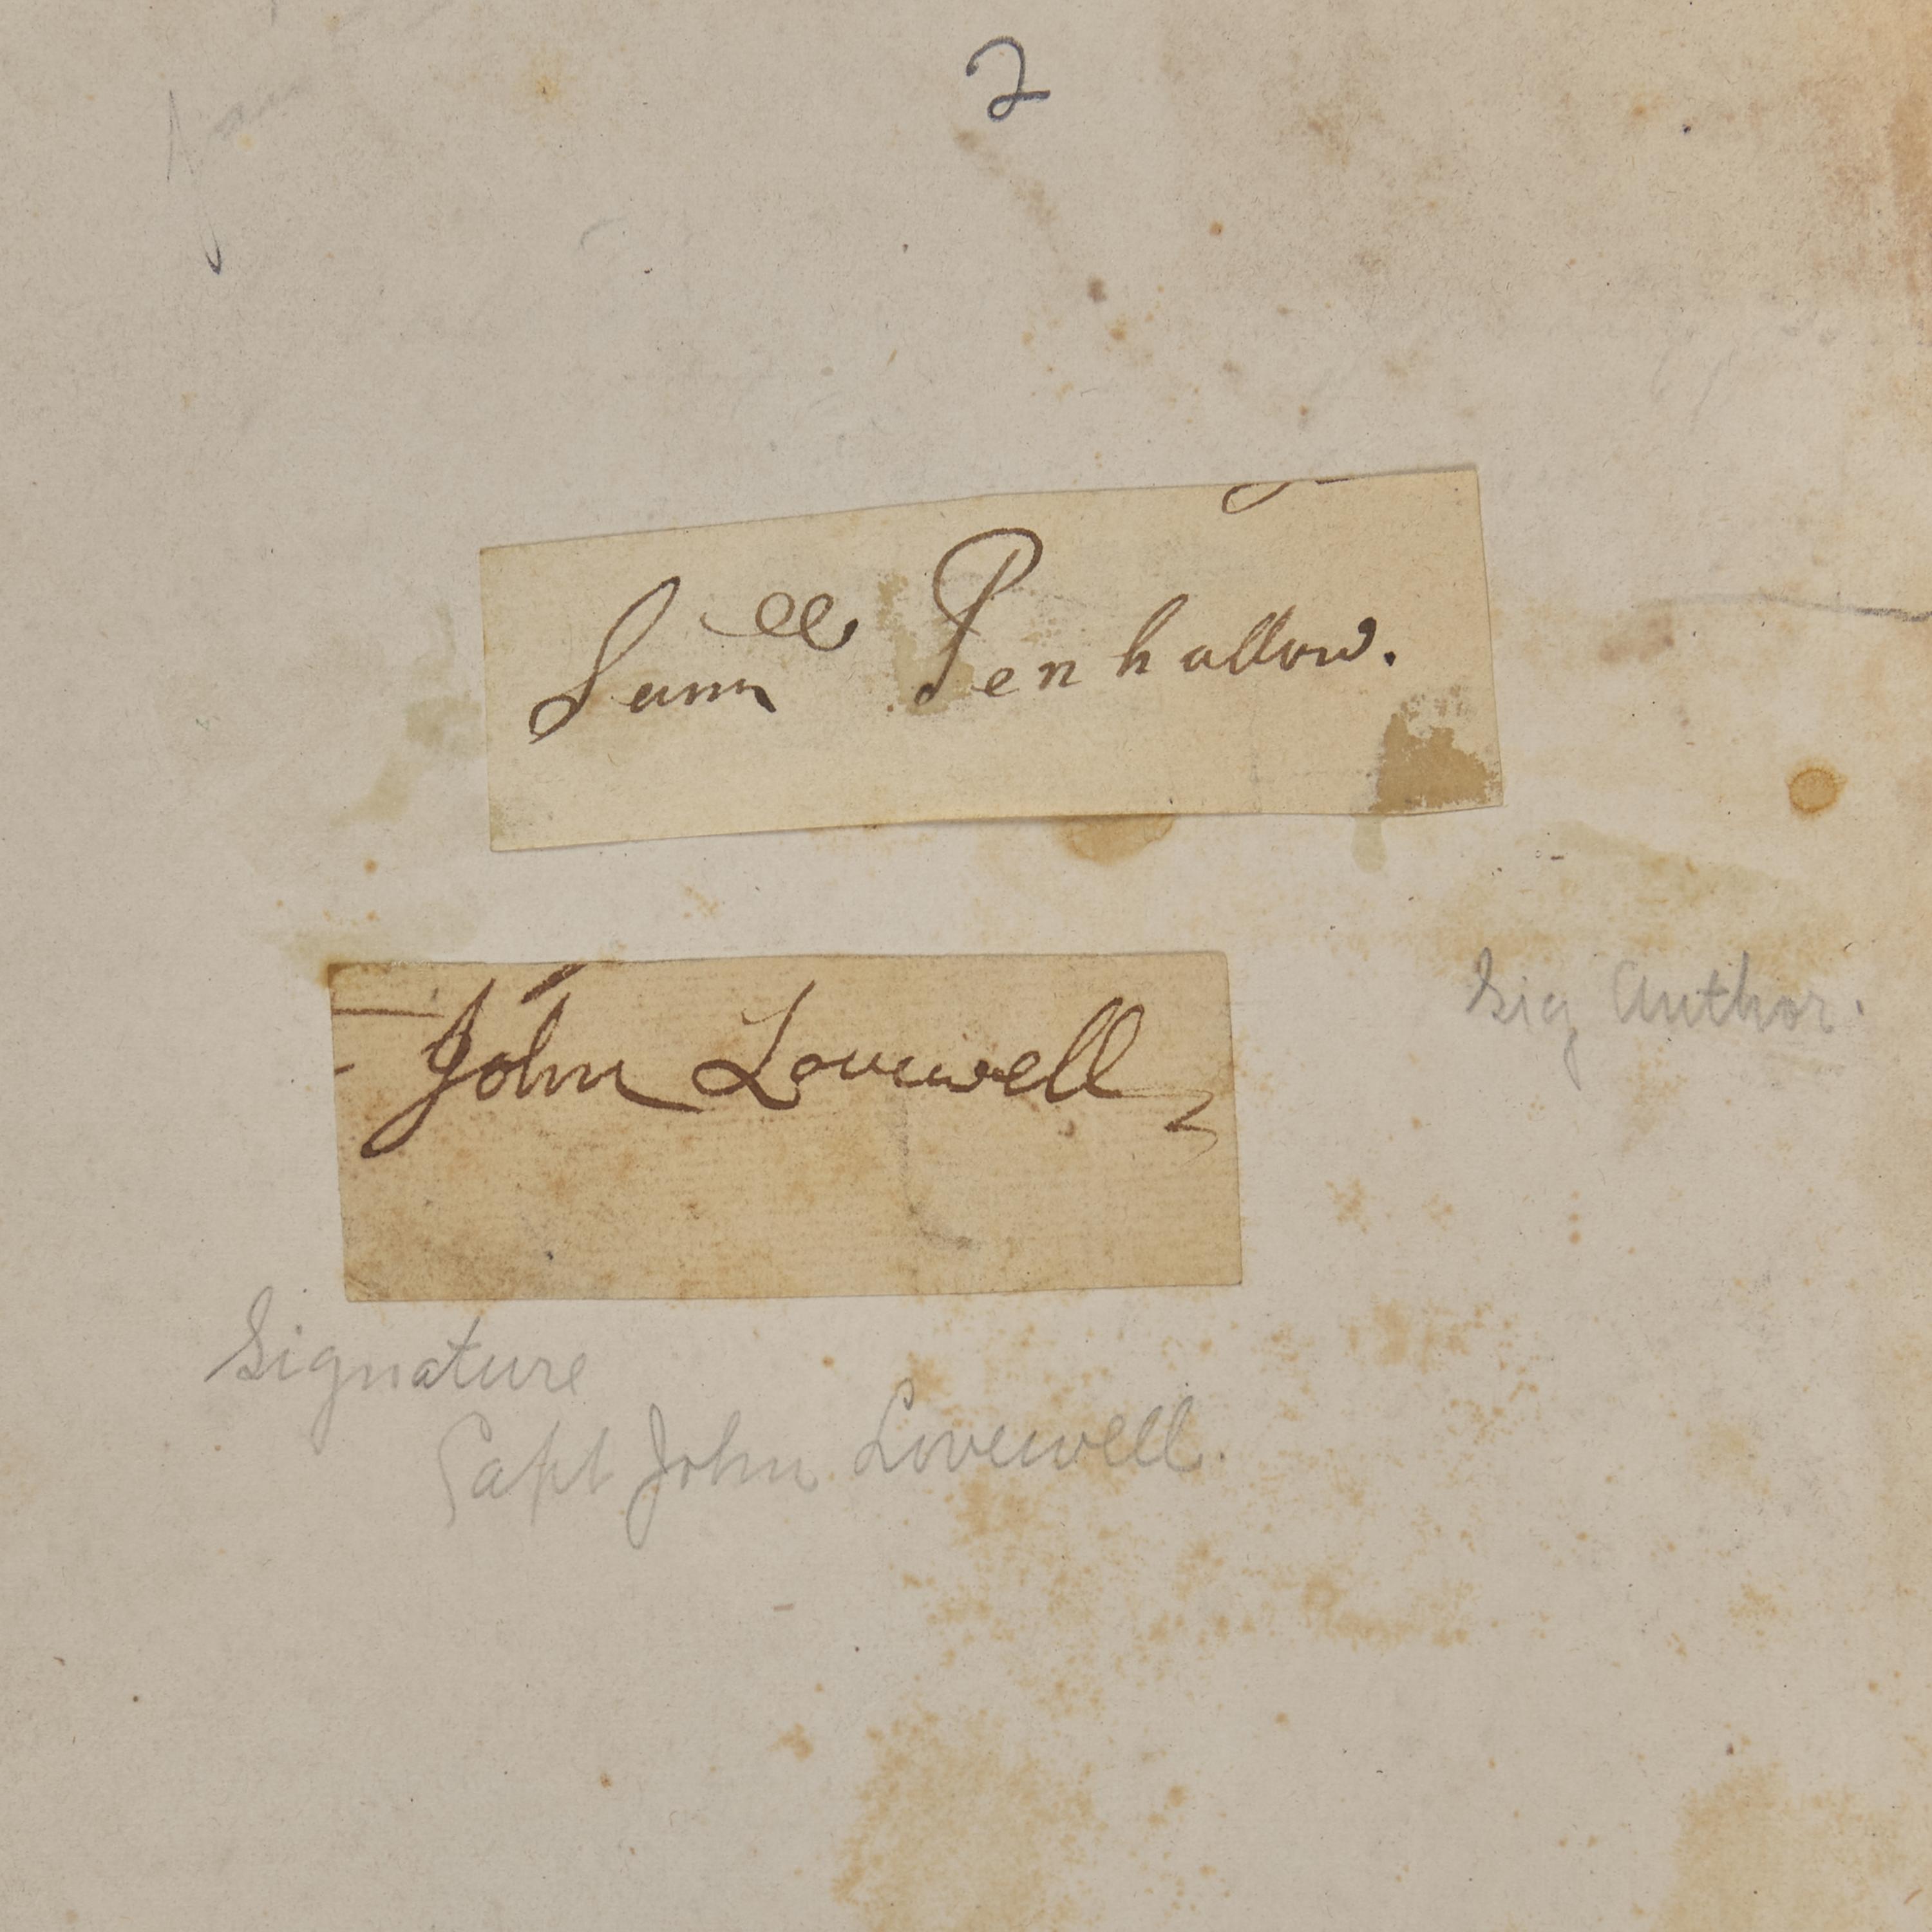 2
Samll Penhallow.
John Lovewell
Sig Author.
Signature
Capt John Lovewell.